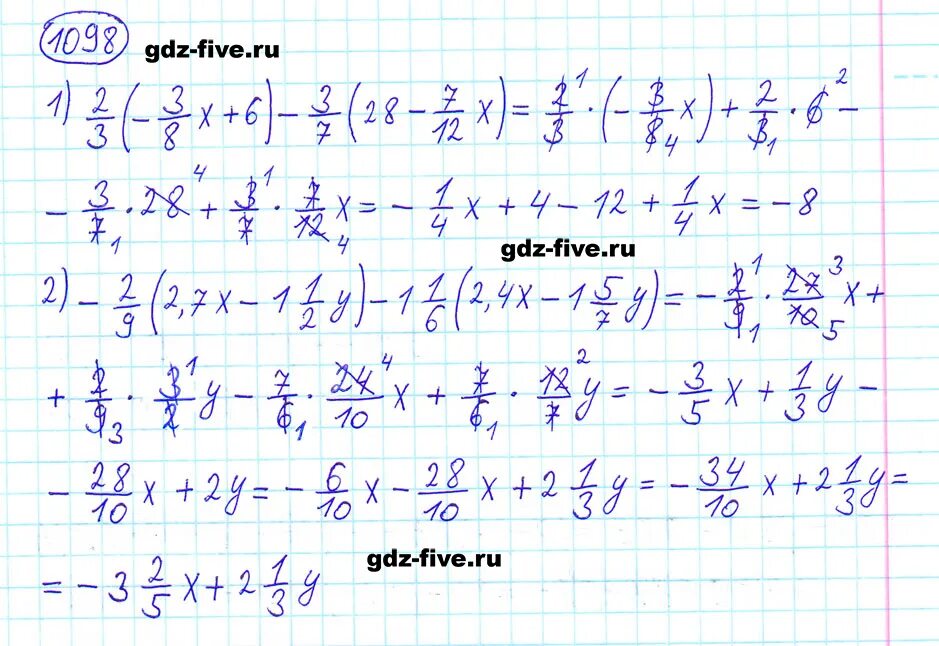 1098 gdz-five.ru
1) 2/3 (- 3/8 x + 6) - 3/7 (28 - 7/12 x) = 2/3 1 · (- 3/8 4 x) + 2/3 1 · 6 2 -
- 3/7 1 · 28 4 + 3/7 1 · 7/12 4 x = - 1/4 x + 4 - 12 + 1/4 x = -8
gdz-five.ru
2) - 2/9 (2,7x - 1 1/2 y) - 1 1/6 (2,4x - 1 5/7 y) = - 2/9 1 1 · 27/10 3 5 x +
+ 2/9 3 · 3/2 1 y - 7/6 1 · 24/10 4 x + 7/6 1 · 12/7 2 y = - 3/5 x + 1/3 y -
- 28/10 x + 2y = - 6/10 x - 28/10 x + 2 1/3 y = - 34/10 x + 2 1/3 y =
gdz-five.ru
= - 3 2/5 x + 2 1/3 y